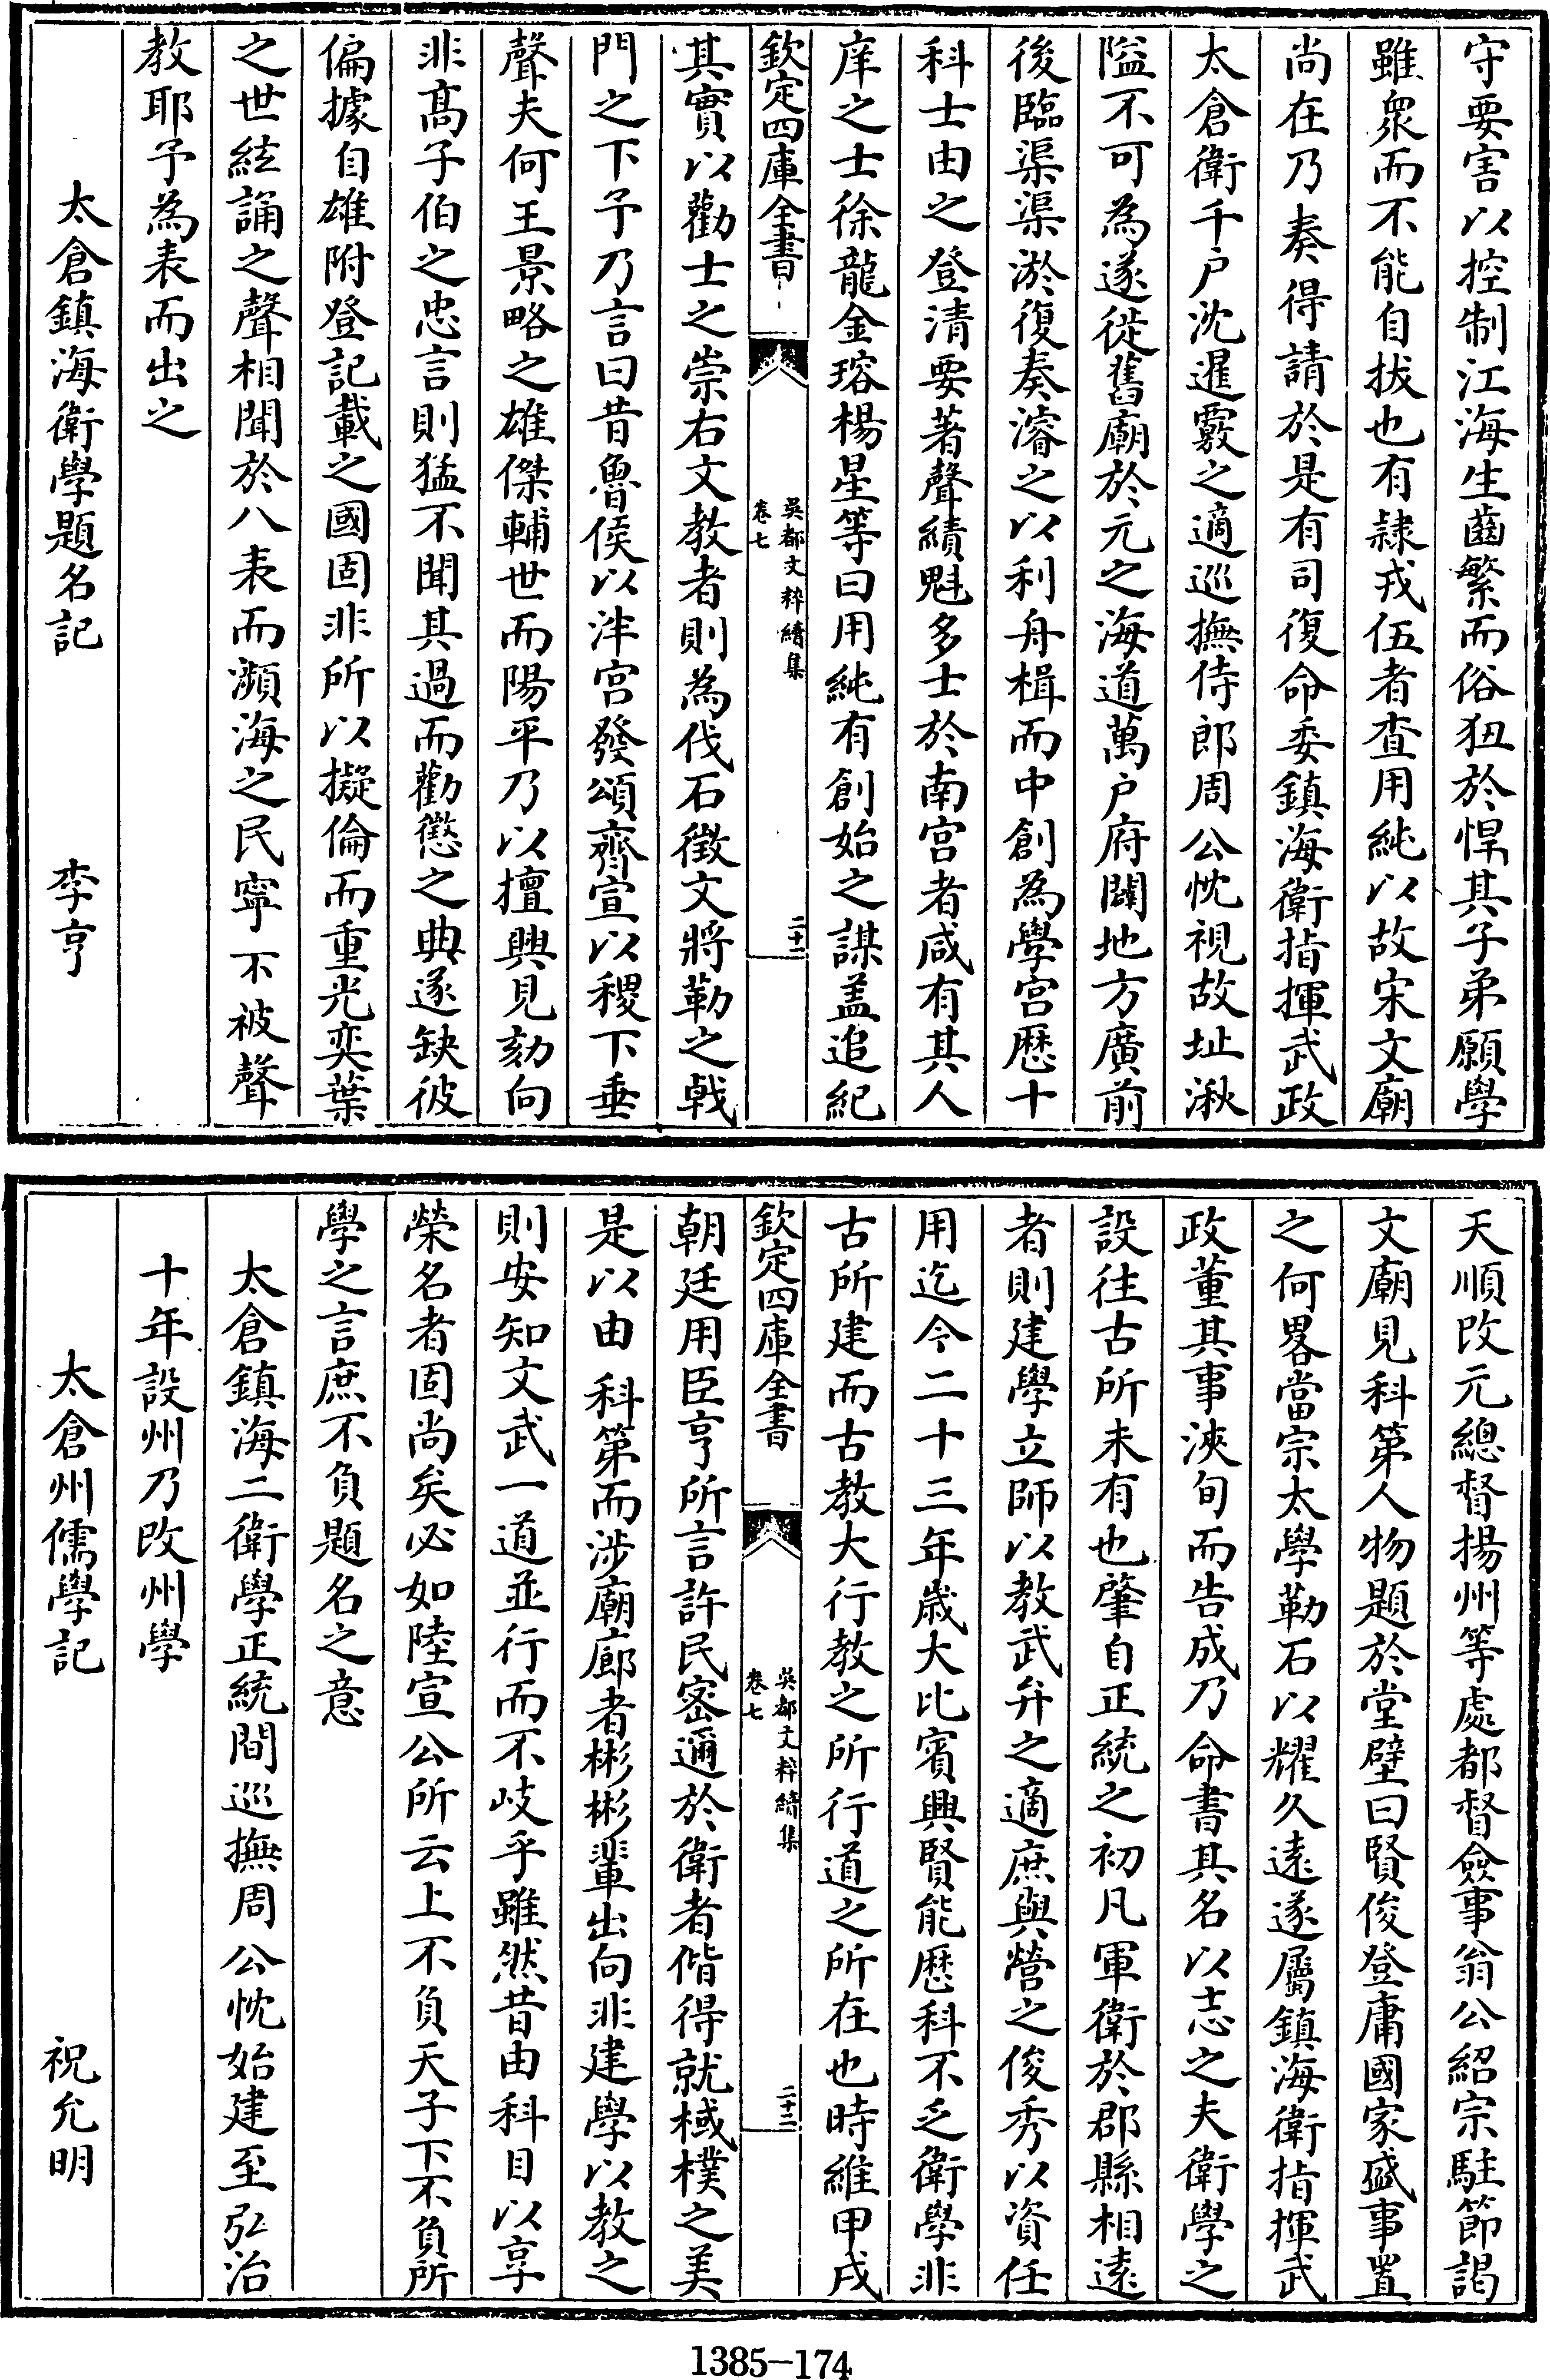 守要害以控制江海生齒繁而俗狃於悍其子弟願學
雖衆而不能自拔也有隷戎伍者查用純以故宋文廟
尚在乃奏得請於是有司復命委鎮海衛指揮武政
太倉衛千戶沈暹覈之適巡撫侍郎周公忱視故址湫
隘不可為遂從舊廟於元之海道萬戶府闢地方廣前
後臨渠渠淤復奏濬之以利舟楫而中創為學宮歴十
科士由之登清要著聲績魁多士於南宮者咸有其人
庠之士徐龍金瑢楊星等曰用純有創始之謀盖追紀
欽定四庫全書
吳都文粹續集
卷七
二十一
其實以勸士之崇右文教者則為伐石徵文將勒之戟
門之下予乃言曰昔魯侯以泮宮發頌齊宣以稷下垂
聲夫何王景略之雄傑輔世而陽平乃以擅興見劾向
非髙子伯之忠言則猛不聞其過而勸懲之典遂缺彼
偏據自雄附登記載之國固非所以擬倫而重光奕葉
之世絃誦之聲相聞於八表而瀕海之民寧不被聲
教耶予為表而出之
太倉鎮海衛學題名記 李亨
天順改元總督揚州等處都督僉事翁公紹宗駐節謁
文廟見科第人物題於堂壁曰賢俊登庸國家盛事置
之何畧當宗太學勒石以耀久遠遂屬鎮海衛指揮武
政董其事浹旬而告成乃命書其名以志之夫衛學之
設往古所未有也肇自正統之初凡軍衛於郡縣相遠
者則建學立師以教武弁之適庶與營之俊秀以資任
用迄今二十三年歲大比賓興賢能歴科不乏衛學非
古所建而古教大行教之所行道之所在也時維甲戌
欽定四庫全書
吳都文粹續集
卷七
二十二
朝廷用臣亨所言許民密邇於衛者偕得就棫樸之美
是以由科第而涉廟廊者彬彬輩出向非建學以教之
則安知文武一道並行而不岐乎雖然昔由科目以享
榮名者固尚矣必如陸宣公所云上不負天子下不負所
學之言庶不負題名之意
太倉鎮海二衛學正統間巡撫周公忱始建至弘治
十年設州乃改州學
太倉州儒學記 祝允明
1385-174